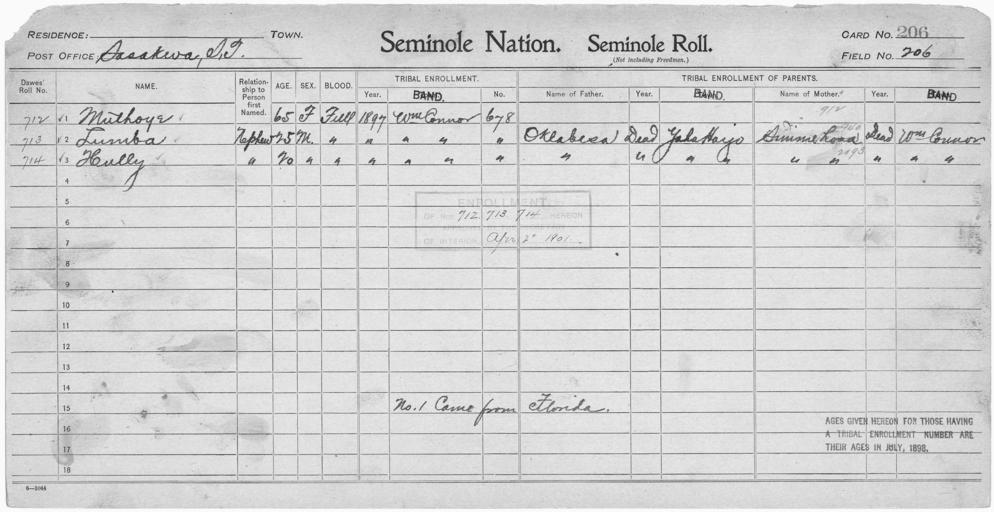 RESIDENCE: TOWN. Seminole Nation. Seminole Roll. CARD NO. 206
POST OFFICE Sasakwa, I.T. (Not including Freedmen.) FIELD NO. 206
Dawes' Roll No. NAME. Relationship to Person first Named. AGE. SEX. BLOOD. TRIBAL ENROLLMENT. TRIBAL ENROLLMENT OF PARENTS.
Year. BAND. No. Name of Father. Year. BAND. Name of Mother. Year. BAND
912
712 1 Muthoye 65 F Full 1897 Wm Connor 678
713 2 Lumba Nephew 25 M. " " " " " Oklabesa Dead Yaha Hajo Dead Wm Connor
714 3 Hully " 20 " " " " " " " " " " " " " " "
4
5
ENROLLMENT
6
OF NOS 712, 713, 714 HEREON
7
OF INTERIOR Apr. 2" 1901.
8
9
10
11
12
13
14
15 No. 1 Came from Florida.
16
17
18
AGES GIVEN HEREON FOR THOSE HAVING
A TRIBAL ENROLLMENT NUMBER ARE
THEIR AGES IN JULY, 1898.